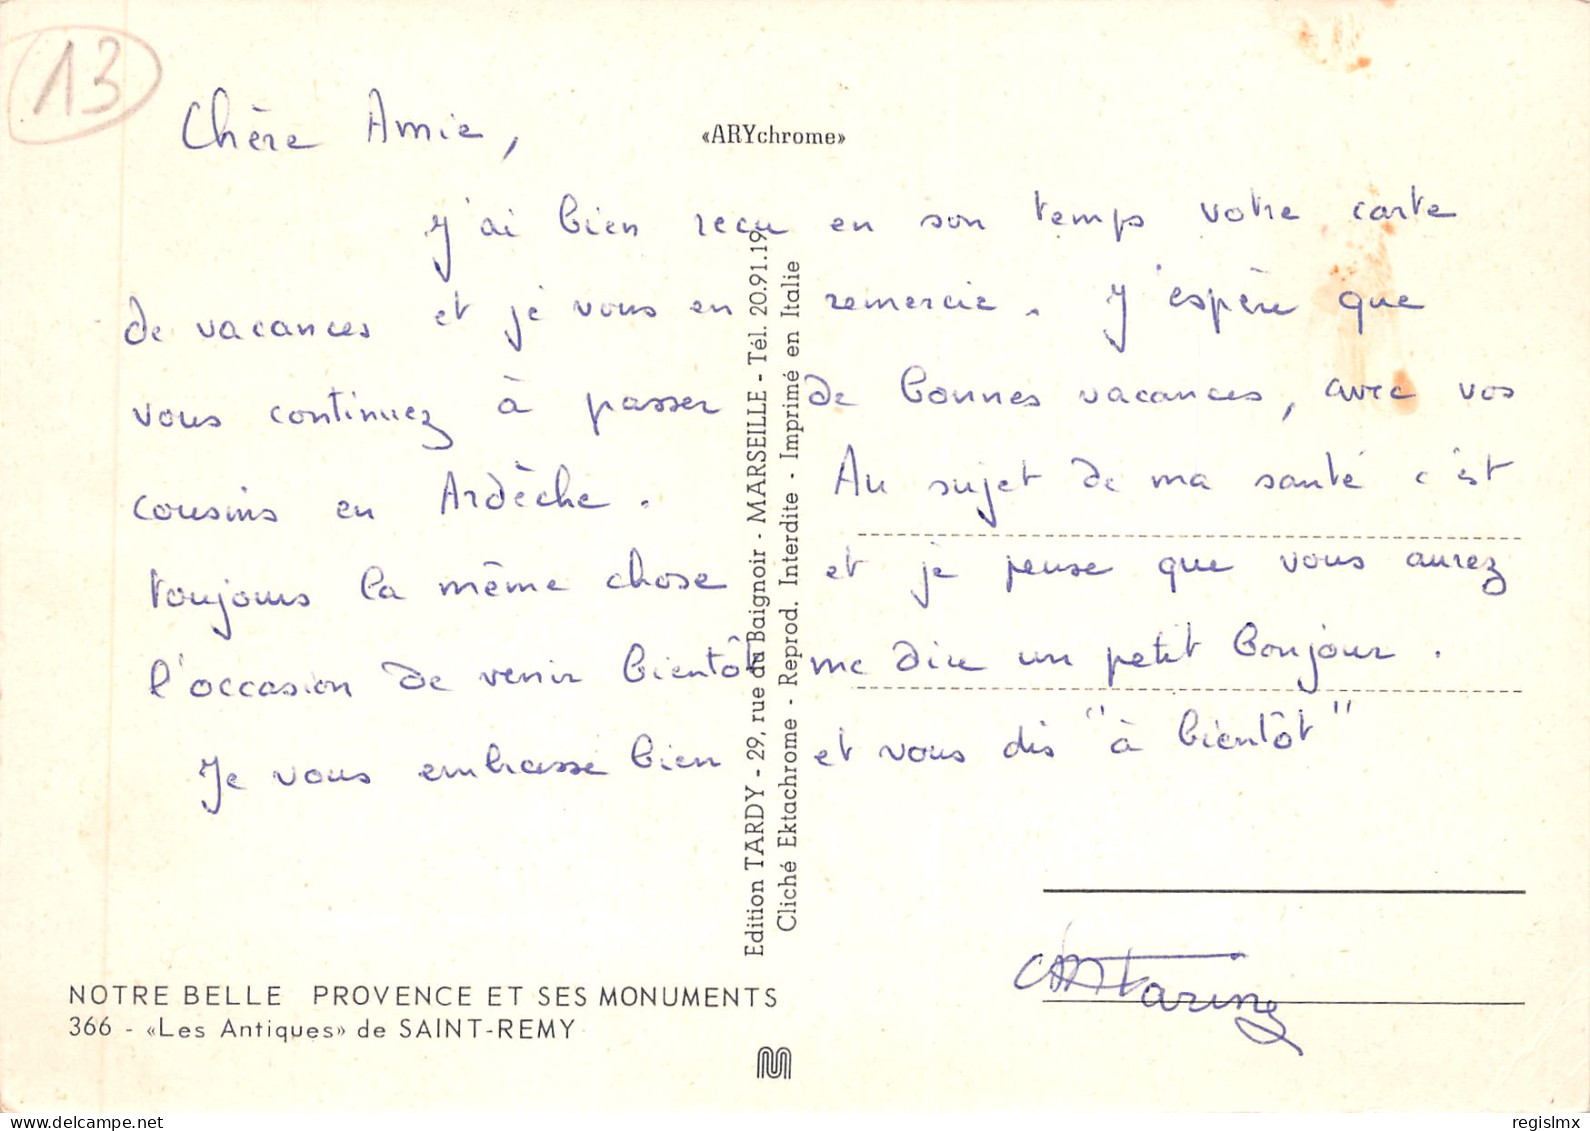 13
Chère Amie,
«ARYchrome»
J'ai bien reçu en son temps votre carte
de vacances et je vous en remercie. J'espère que
vous continuez à passer de bonnes vacances, avec vos
cousins en Ardèche. Au sujet de ma santé c'est
toujours la même chose et je pense que vous aurez
l'occasion de venir bientôt me dire un petit bonjour.
Je vous embrasse bien et vous dis "à bientôt"
Edition TARDY - 29, rue du Baignoir - MARSEILLE - Tél. 20.91.19
Cliché Ektachrome - Reprod. Interdite - Imprimé en Italie
NOTRE BELLE PROVENCE ET SES MONUMENTS
366 - «Les Antiques» de SAINT-REMY
regislmx